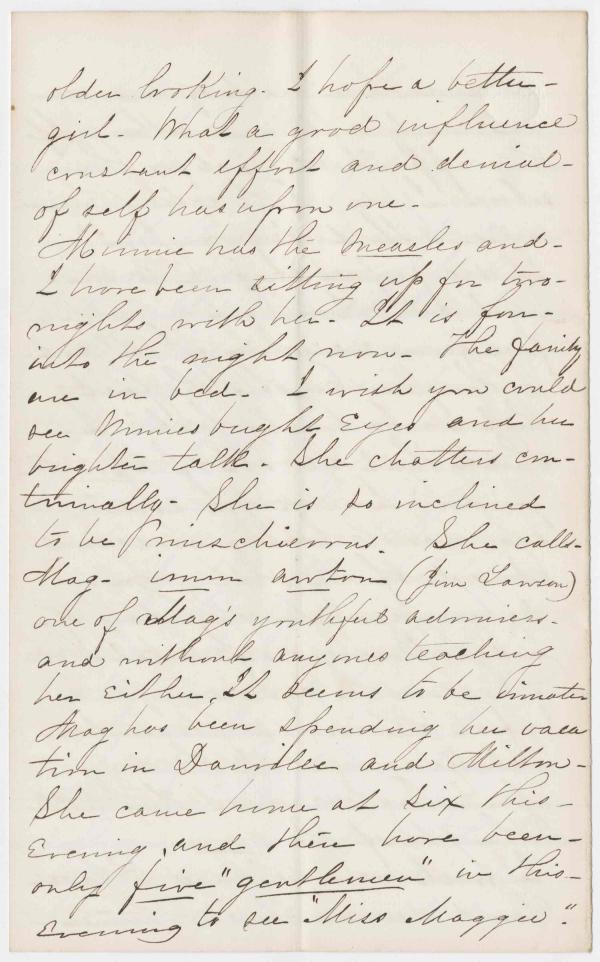 older looking. I hope a better-
girl. What a good influence
constant effort and denial-
of self has upon one.
Minnie has the measles and-
I have been sitting up for two-
nights with her. It is far-
into the night now. The family
are in bed. I wish you could
see Minnies bright Eyes and her
brighter talk. She chatters con-
tinually. She is so inclined
to be mischievous. She calls-
Mag- imm awton (Jim Lawson)
one of Mag's youthful admirers-
and without anyones teaching
her either. It seems to be innate
Mag has been spending her vaca
tion in Danville and Milton-
She came home at six this-
Evening, and there have been-
only five "gentlemen" in this-
evening to see "Miss Maggie".